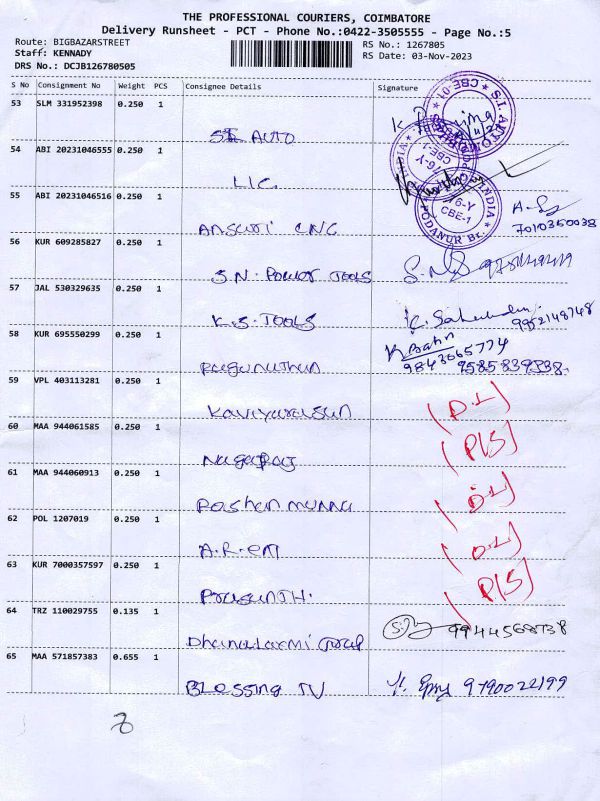 THE PROFESSIONAL COURIERS, COIMBATORE
Delivery Runsheet - PCT - Phone No.:0422-3505555 - Page No.:5
Route: BIGBAZARSTREET
Staff: KENNADY
DRS No.: DCJB126780505
RS No.: 1267805
RS Date: 03-Nov-2023
S No Consignment No Weight PCS Consignee Details Signature
53 SLM 331952398 0.250 1
SI AUTO
54 ABI 20231046555 0.250 1
LIC
55 ABI 20231046516 0.250 1
CNC
7010350038
56 KUR 609285827 0.250 1
S.N. Power TOOLS
57 JAL 530329635 0.250 1
K.S. TOOLS
9952148748
58 KUR 695550299 0.250 1
Ragunathan
9843665774
9585839538
59 VPL 403113281 0.250 1
Kaviyarasun
(D.L)
60 MAA 944061585 0.250 1
Nagaraj
(P/S)
61 MAA 944060913 0.250 1
Roshan munna
(D.L)
62 POL 1207019 0.250 1
A.R. em
(D.L)
63 KUR 7000357597 0.250 1
PrasunTH.
(P/S)
64 TRZ 110029755 0.135 1
Dhanalaxmi
9944568738
65 MAA 571857383 0.655 1
Blessing TV
9790022199
S.I. AUTOM
CBE-01
INDIA
76-Y
CBE-1
PODANUR Br.